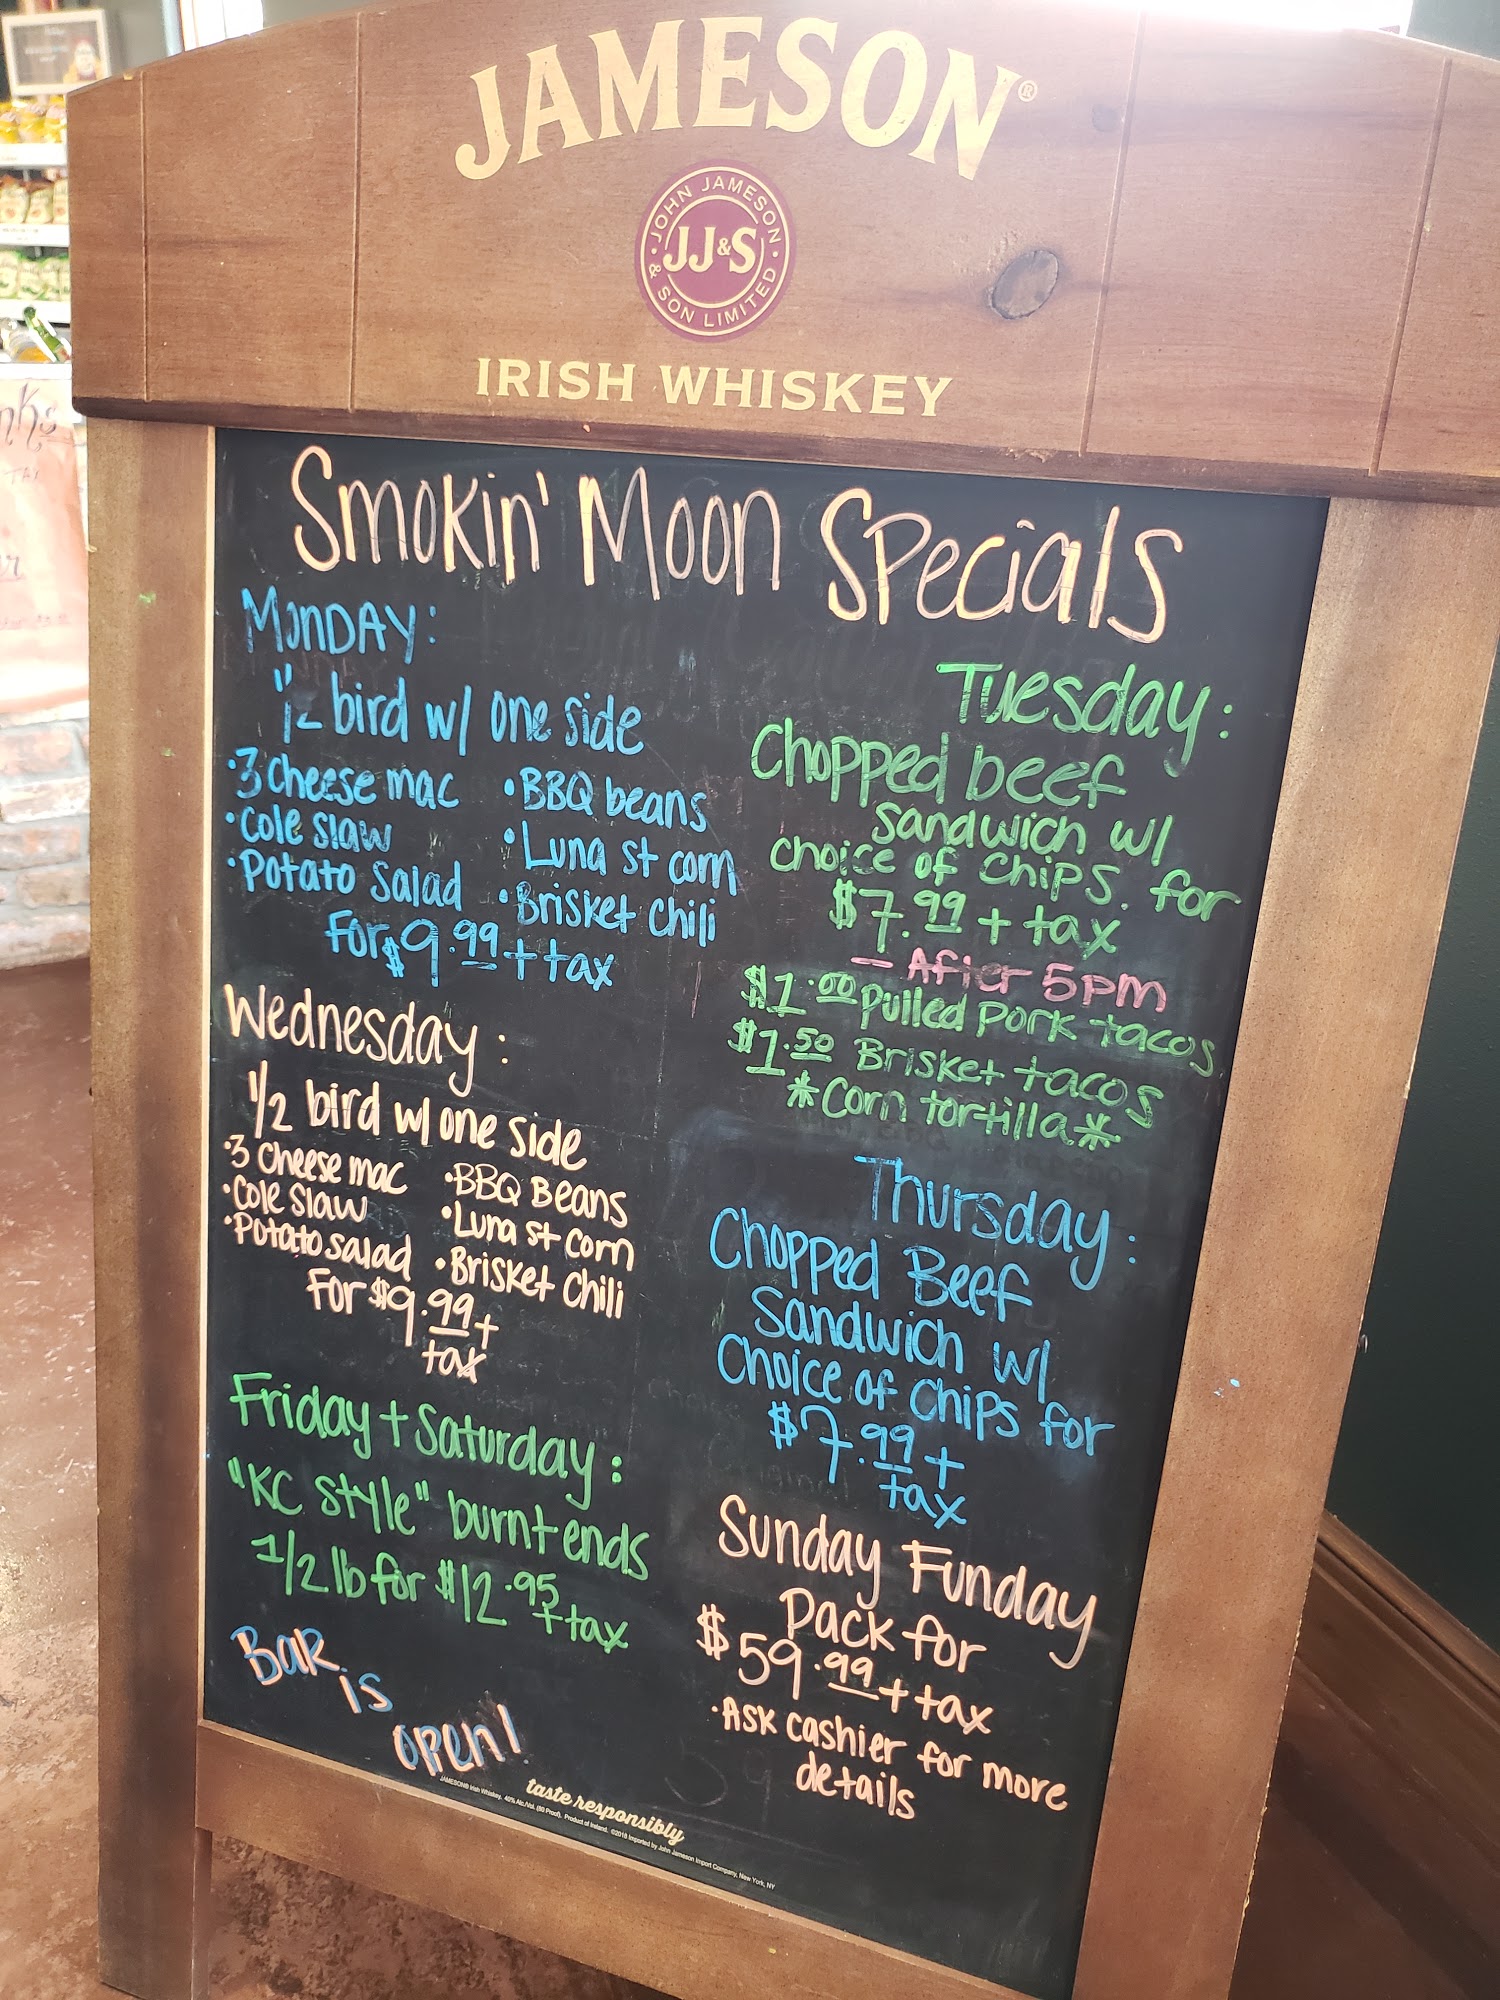 JAMESON®
JOHN JAMESON
JJ&S
& SON LIMITED
IRISH WHISKEY
Smokin' Moon Specials
MonDAY:
1/2 bird w/ one side
•3 Cheese mac •BBQ beans
•Cole Slaw •Luna st corn
•Potato Salad •Brisket Chili
For $9.99 + tax
Tuesday:
Chopped beef
Sandwich w/
choice of Chips. for
$7.99 + tax
- After 5pm
$1.00 pulled pork tacos
$1.50 Brisket tacos
*Corn tortilla*
Wednesday:
1/2 bird w/ one side
•3 Cheese mac •BBQ Beans
•Cole Slaw •Luna st corn
•Potato salad •Brisket Chili
For $9.99 +
tax
Thursday:
Chopped Beef
Sandwich w/
Choice of Chips for
$7.99 +
tax
Friday + Saturday:
"KC Style" burnt ends
1/2 lb for $12.95 + tax
Sunday Funday
Pack for
$59.99 + tax
•Ask cashier for more
details
Bar
is
open!
taste responsibly
JAMESON® Irish Whiskey. 40% Alc./Vol. (80 Proof). Product of Ireland. ©2018 Imported by John Jameson Import Company, New York, NY